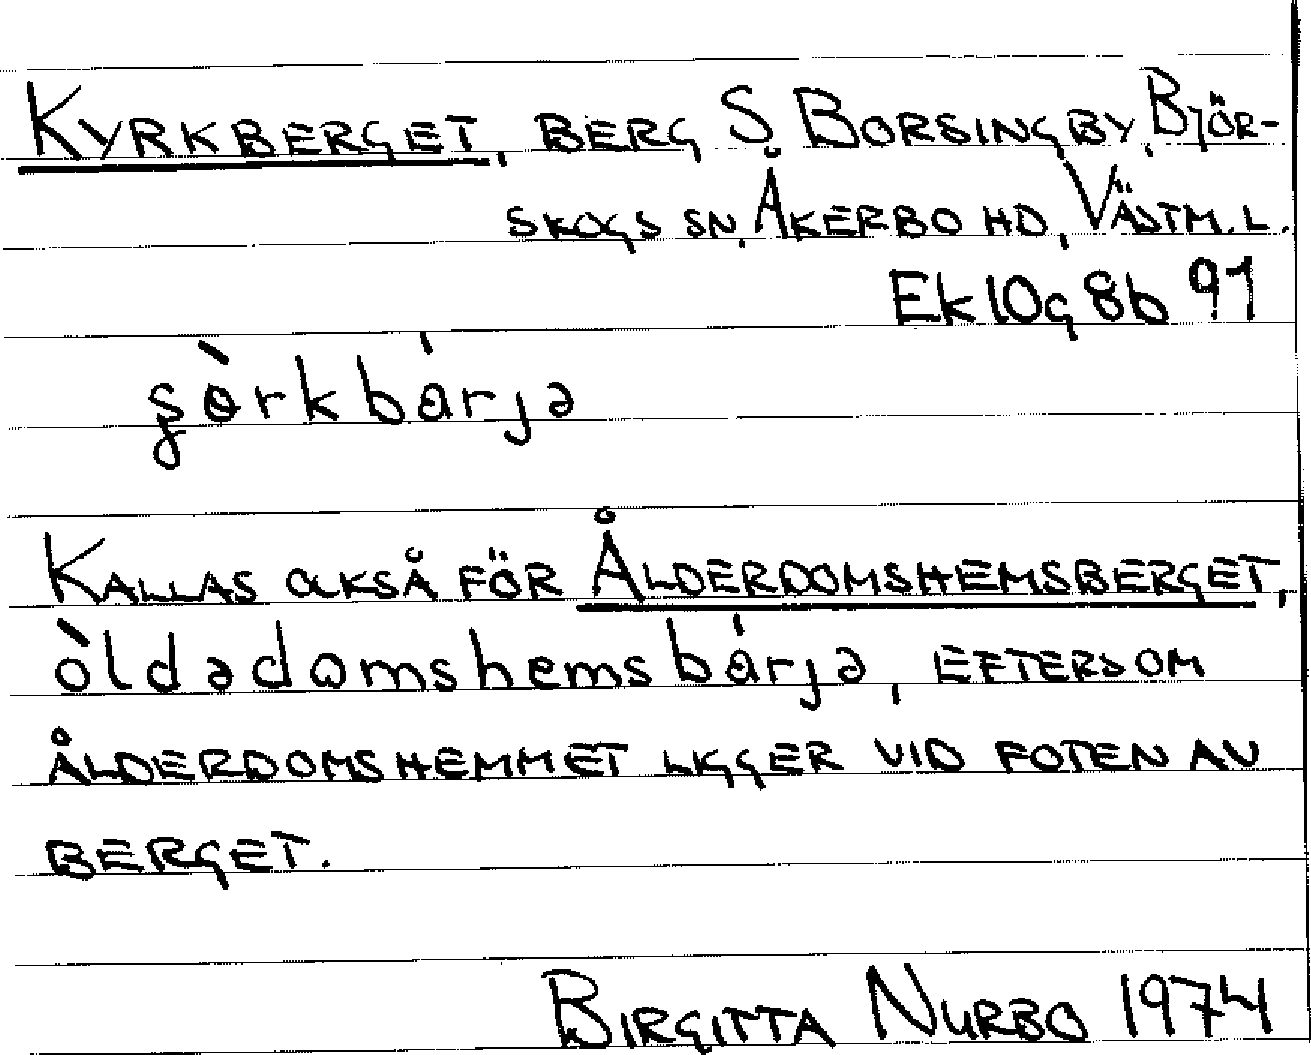 KYRKBERGET, BERG S. BORSINGBY, BJÖR-
SKOGS SN, ÅKERBO HD, VÄSTM. L.
Ek 10g 8b 91
KALLAS OCKSÅ FÖR ÅLDERDOMSHEMSBERGET,
òldədomshemsbárjə, EFTERSOM
ÅLDERDOMSHEMMET LIGGER VID FOTEN AV
BERGET.
BIRGITTA NURBO 1974